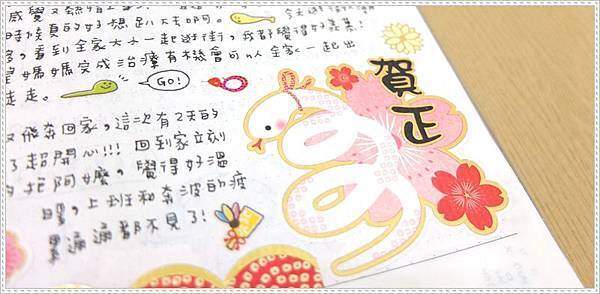 感覺又熱
時候真的好想趴大睡啊。
看到全家大小一起逛街,我都覺得好羨慕!
望媽媽完成治療有機會可以全家一起出
走走。
GO!
賀正
又飛奔回家,這次有2天的
了超開心!!! 回到家立刻
抱阿嬤,覺得好溫
暖,上班和奔波的疲
累通通都不見了!